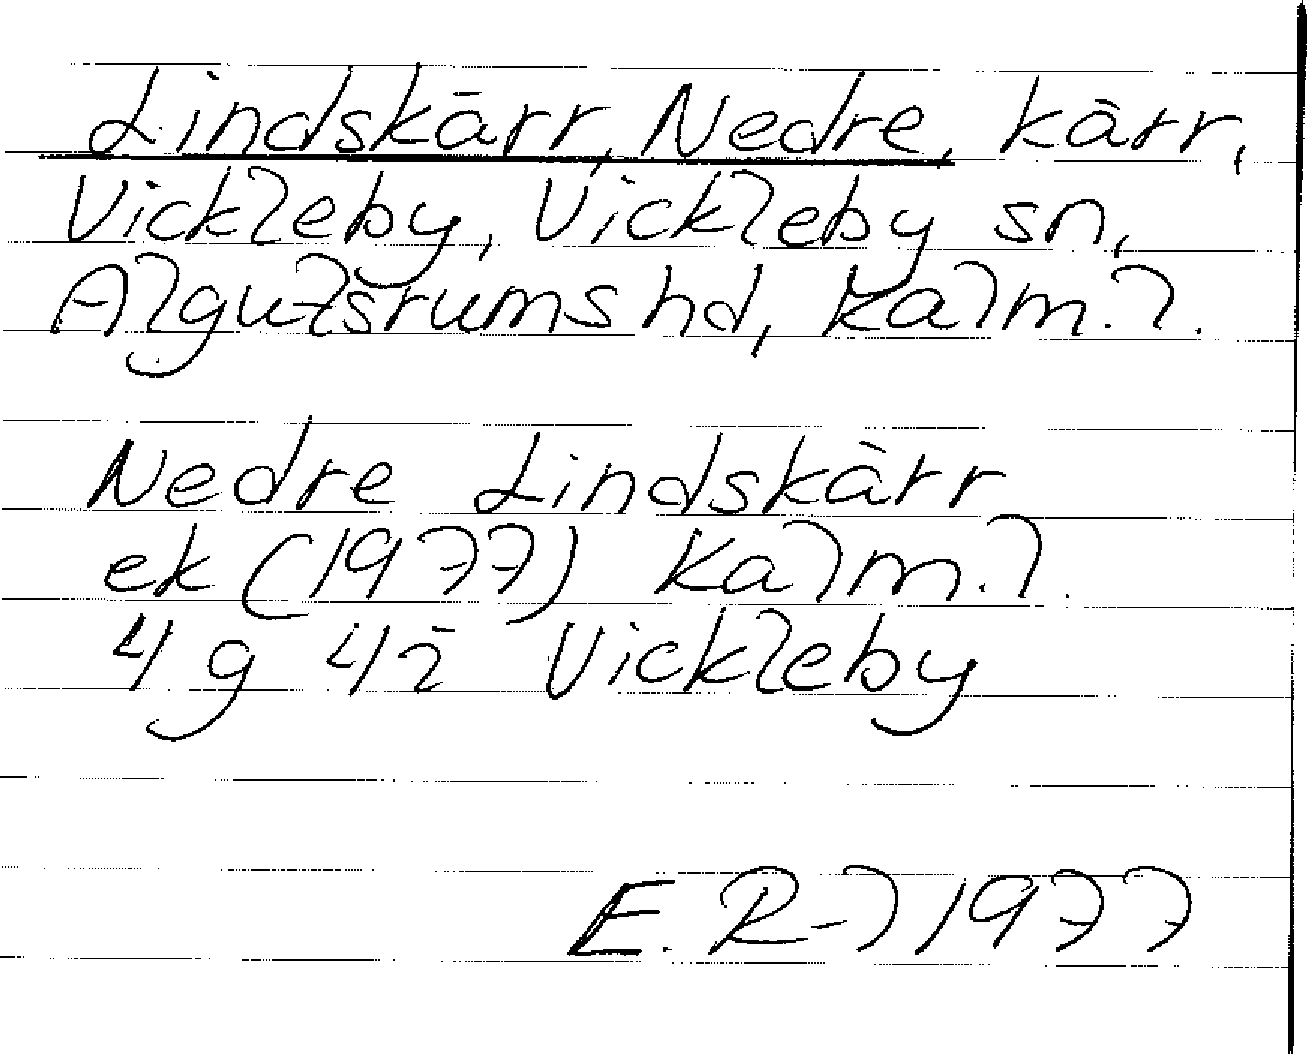 Lindskärr, Nedre, kärr,
Vickleby, Vickleby sn,
Algutsrums hd, Kalm. l.
Nedre Lindskärr
ek (1977) Kalm. l.
4 g 42 Vickleby
E. R-l 1977